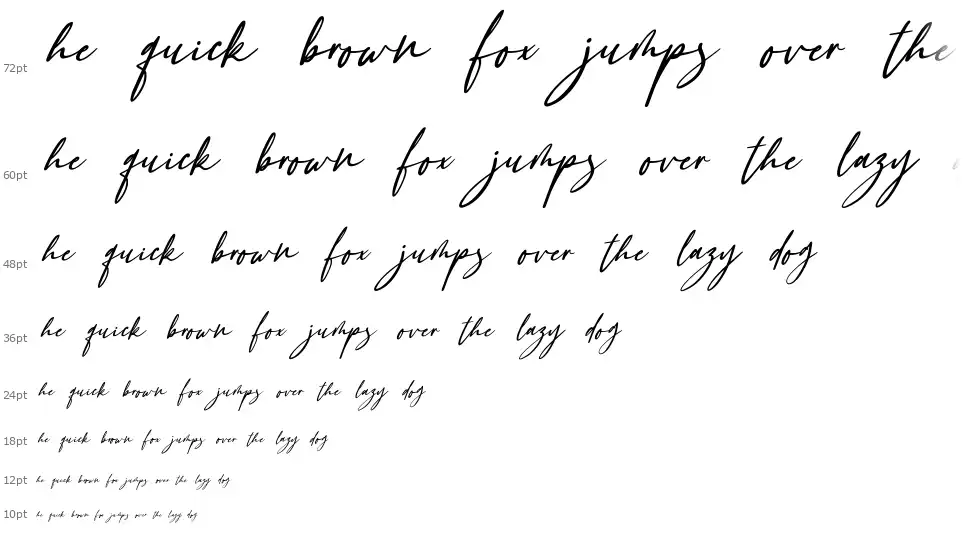 72pt he quick brown fox jumps over the
60pt he quick brown fox jumps over the lazy
48pt he quick brown fox jumps over the lazy dog
36pt he quick brown fox jumps over the lazy dog
24pt he quick brown fox jumps over the lazy dog
18pt he quick brown fox jumps over the lazy dog
12pt he quick brown fox jumps over the lazy dog
10pt he quick brown fox jumps over the lazy dog